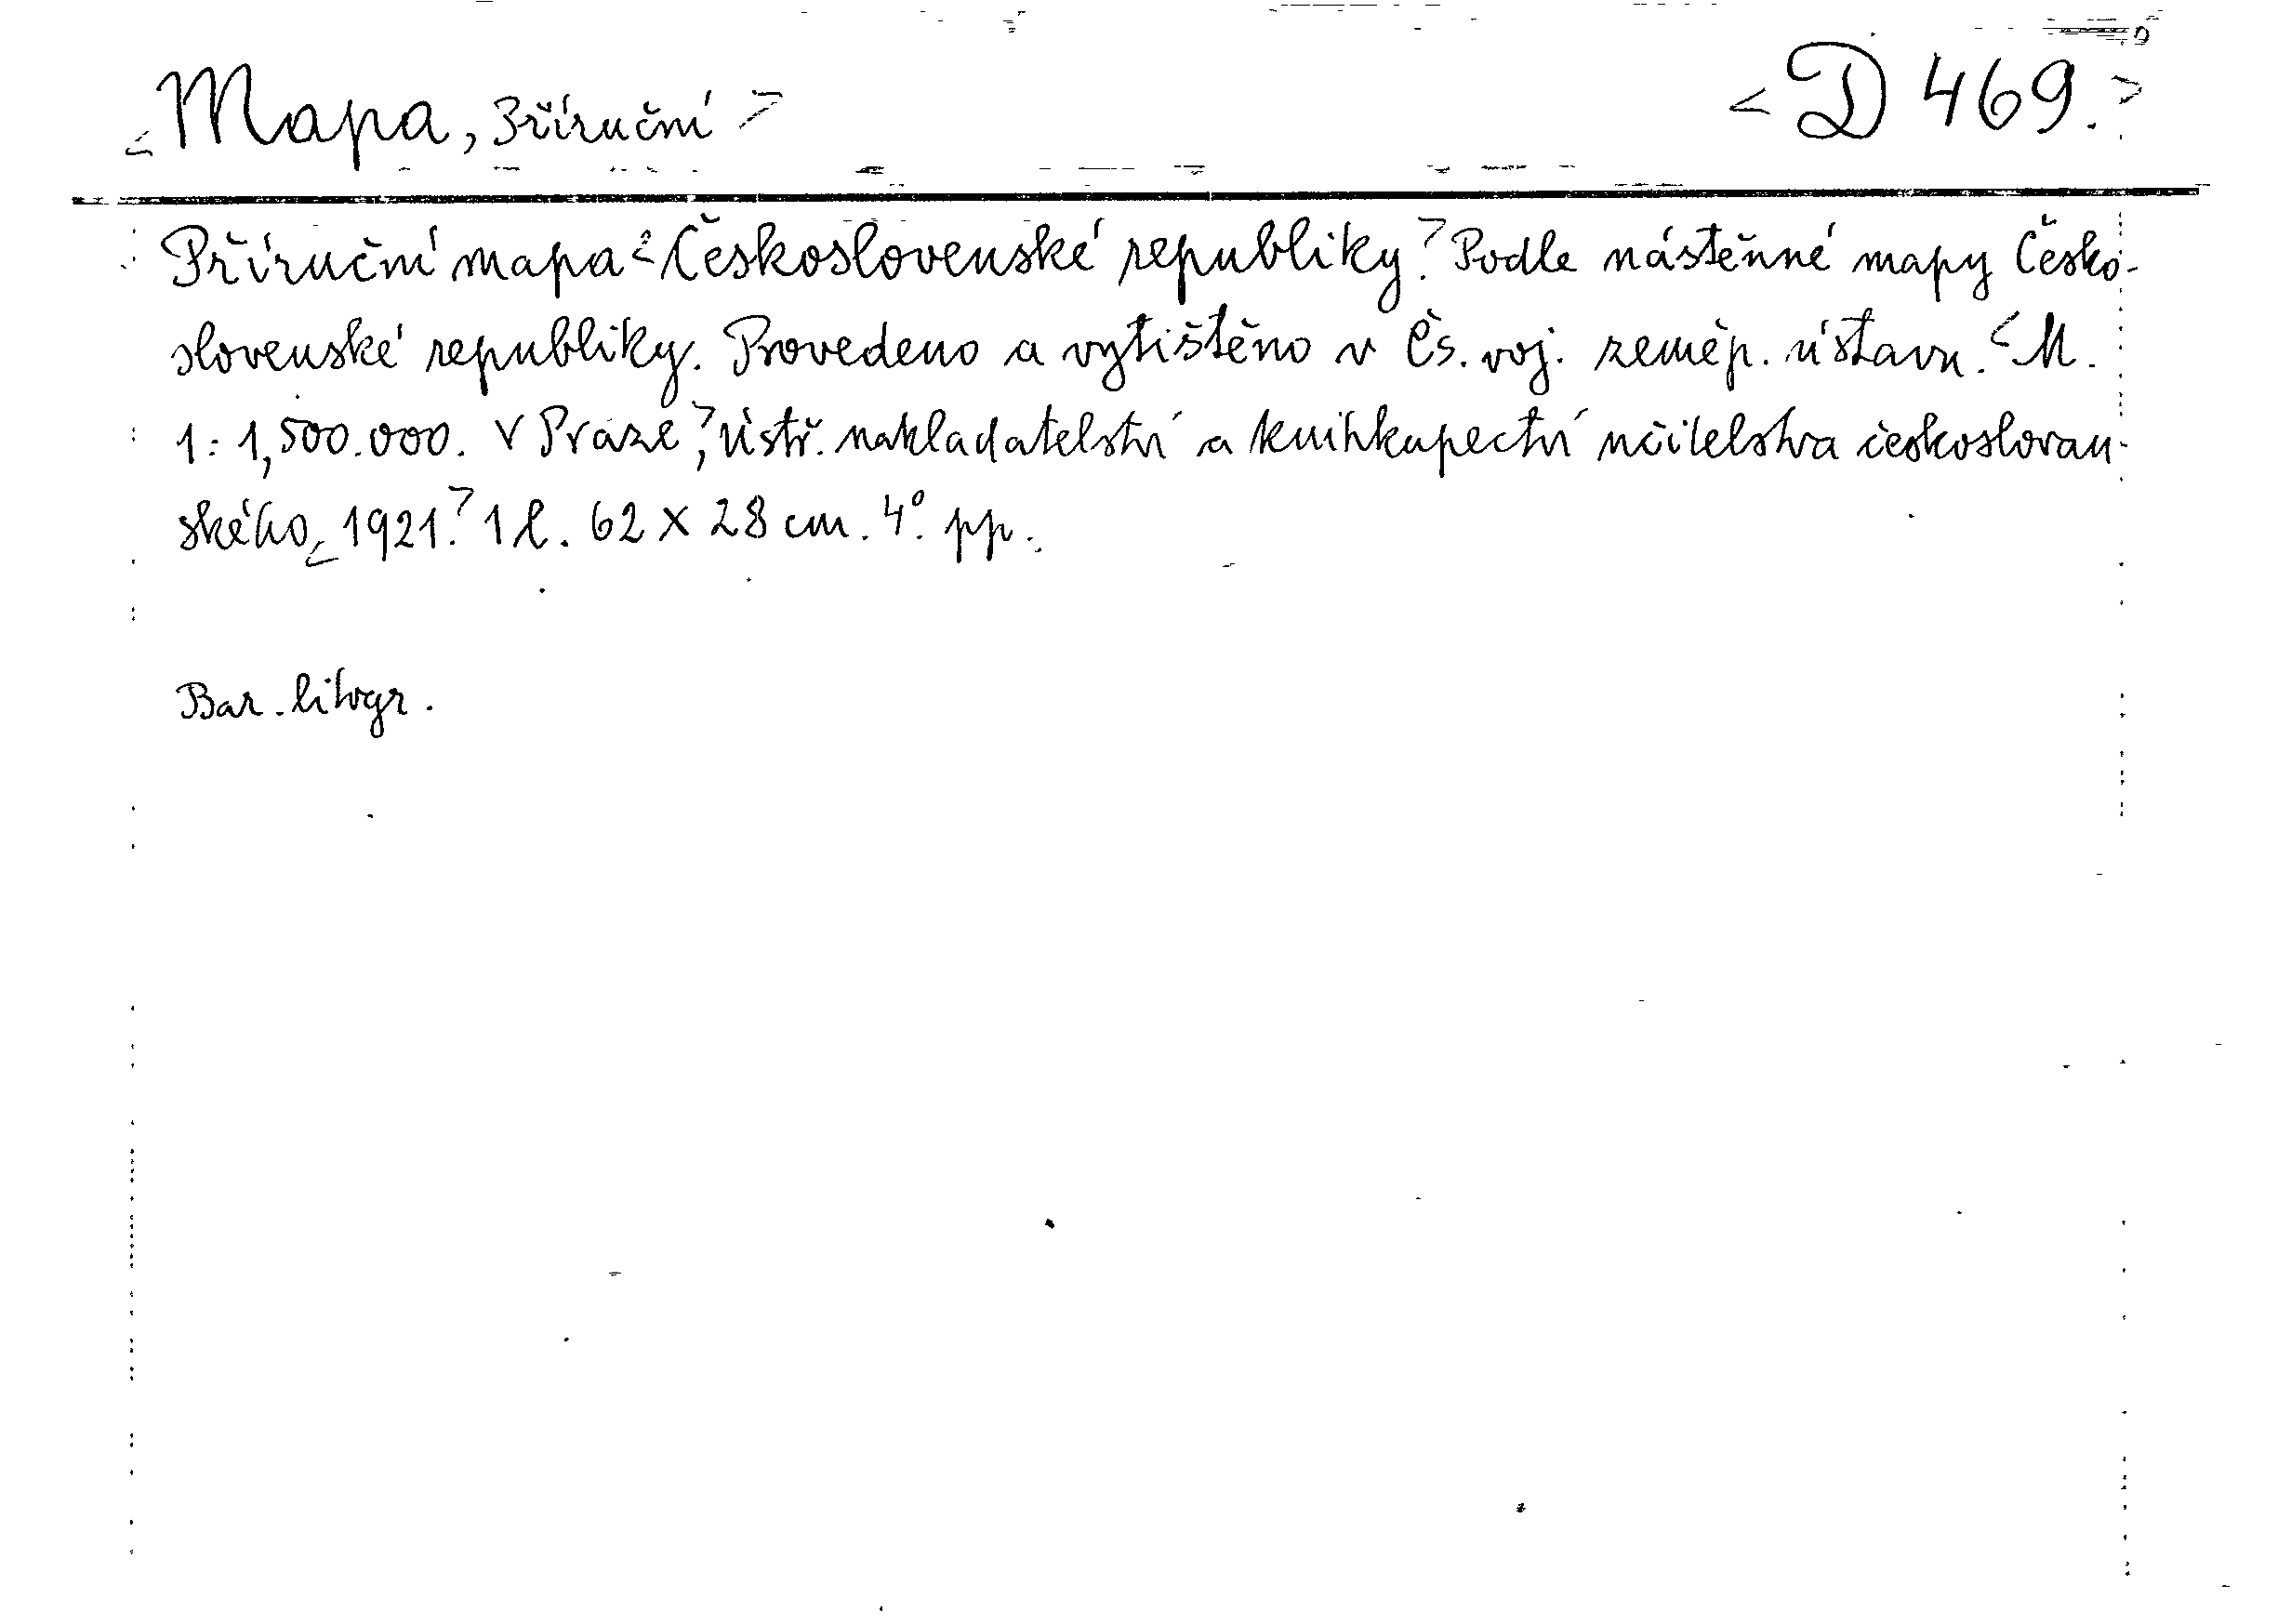 <Mapa, Příruční> <D 469.>
Příruční mapa <Československé republiky.> Podle nástěnné mapy Česko-
slovenské republiky. Provedeno a vytištěno v Čs. voj. zeměp. ústavu. <M.
1:1,500.000. V Praze>, Ústř. nakladatelství a knihkupectví učitelstva českoslovan-
ského, <1921.> 1 l. 62 x 28 cm. 4° pp.
Bar. litogr.